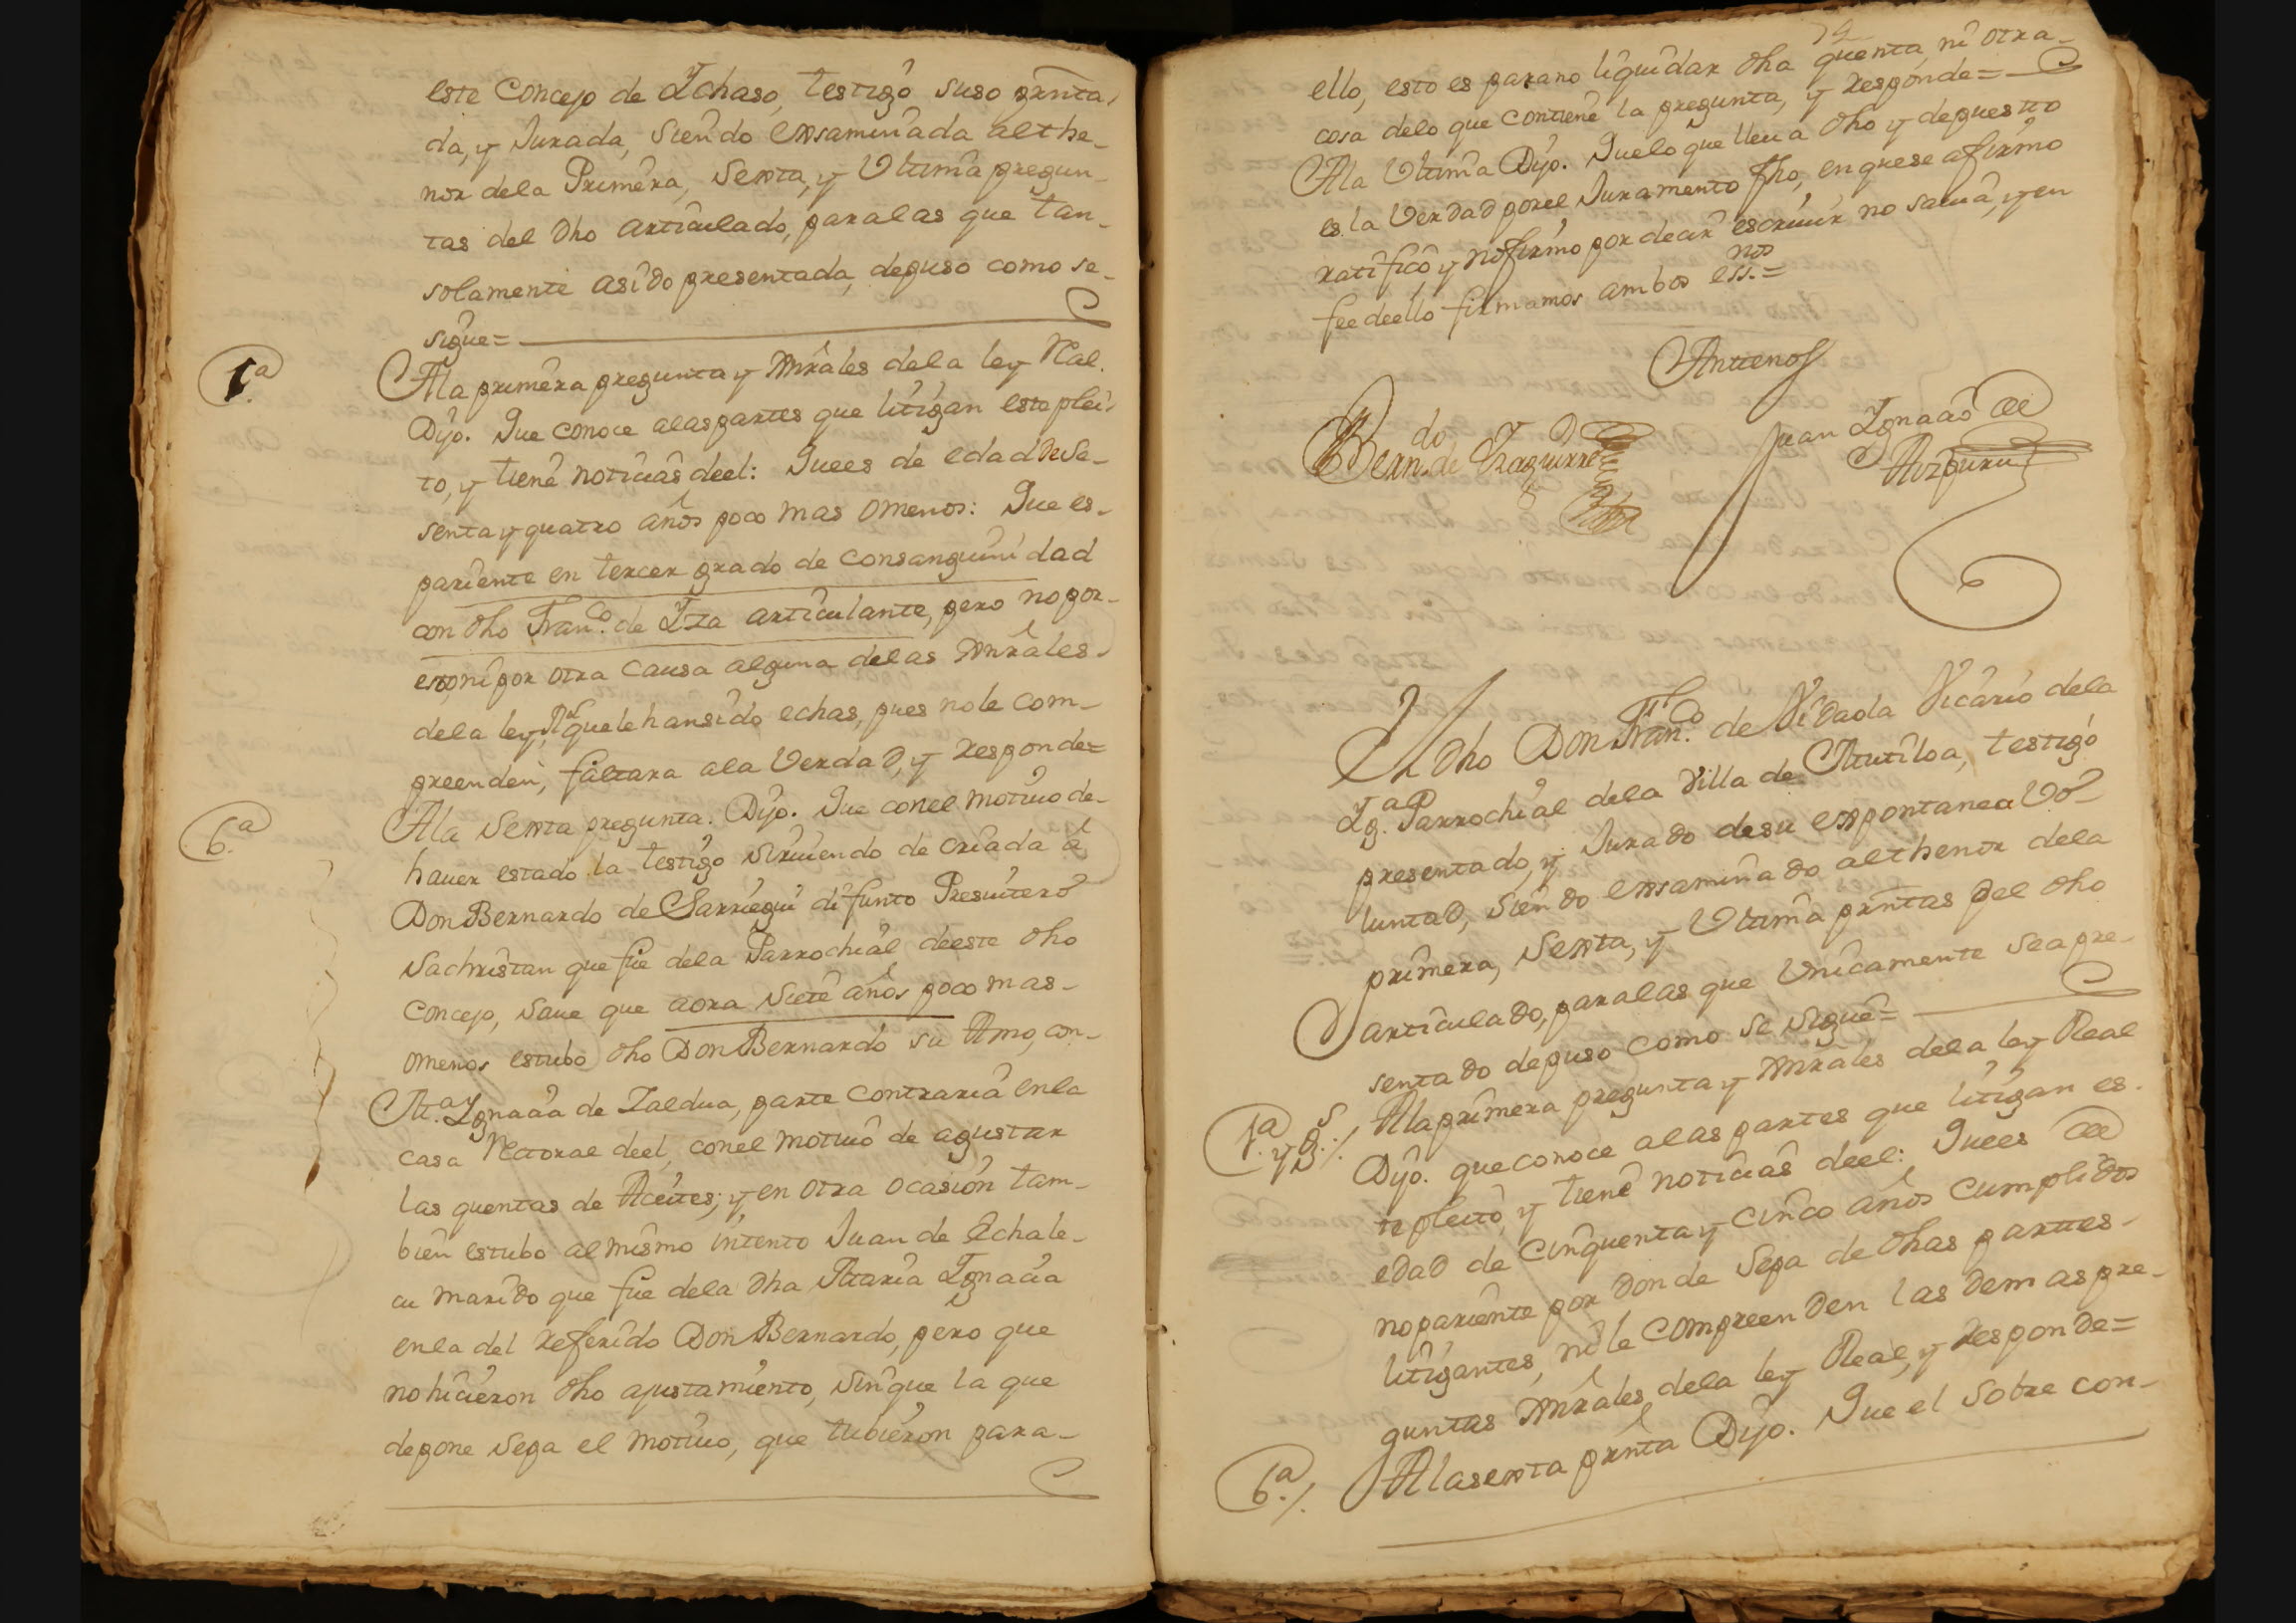 este Concejo de Ychaso, testigo suso prnta,
da, y Jurada, Siendo exsaminada al the-
nor dela Primera, Sexta, y Vltima pregun-
tas del dho articulado, para las que tan-
solamente asido presentada, depuso como se-
sigue=
1.ª
Ala primera pregunta y Gnrales dela ley Real.
Dijo. Que conoce alas partes que litigan este plei,
to, y tiene noticias deel: Que es de edad de Se-
senta y quatro años poco mas omenos: Que es-
pariente en tercer grado de Consanguinidad
con dho Fran.co de Yza articulante, pero no por-
esto, ni por otra causa alguna delas Gnrales
dela ley Rl que le han sido echas, pues no le com-
preenden, faltara ala Verdad, y responde=
6.ª
Ala Sexta pregunta. Dijo. Que con el motivo de-
hauer estado la testigo siruiendo de criada á
Don Bernardo de Sarriegui difunto Presuitero
Sachristan que fue dela Parrochial deeste dho
Concejo, Saue que aora Siete años poco mas-
omenos estubo dho Don Bernardo su Amo, con-
M.ª Ygnacia de Zaldua, parte contraria en la
casa Rectoral deel, con el motiuo de agustar
las quentas de Aceites; y en otra ocasion tam-
bien estubo al mismo intento Juan de Echale-
cu marido que fue dela dha Maria Ygnacia
en la del referido Don Bernardo, pero que
no hicieron dho ajustamiento, sin que la que
depone sepa el motiuo, que tubieron para-
74
ello, esto es para no liquidar dha quenta, ni otra-
cosa delo que contiene la pregunta, y responde=
Ala Vltima Dijo. Que lo que lleua dho y depuesto
es la Verdad por el Juramento fho, en que se afirmo
ratifico y no firmo por decir escriuir no sauia, y en
fee de ello firmamos ambos ess.nos =
Antenos
Bern.do de Yzaguirre
Juan Ygnacio de
Aizpuru
El dho Don Fran.co de Vidaola Vicario dela
Yg.ª Parrochial dela Villa de Mutiloa, testigo
presentado, y Jurado de su expontanea Vo-
luntad, siendo exsaminado al thenor dela
primera, Sexta, y Vltima prntas del dho
articulado, para las que Vnicamente sea pre-
sentado depuso como se sigue=
1.ª y Gs./.
Ala primera pregunta y Gnrales dela ley Real
Dijo. que conoce alas partes que litigan es-
te pleito, y tiene noticias deel: Que es de
edad de cinquenta y cinco años cumplidos
no pariente por donde sepa de dhas partes-
litigantes, ni le compreenden las demas pre-
guntas Gnrales dela ley Real, y responde=
6.ª/.
Ala sexta prnta Dijo. Que el Sobre con-